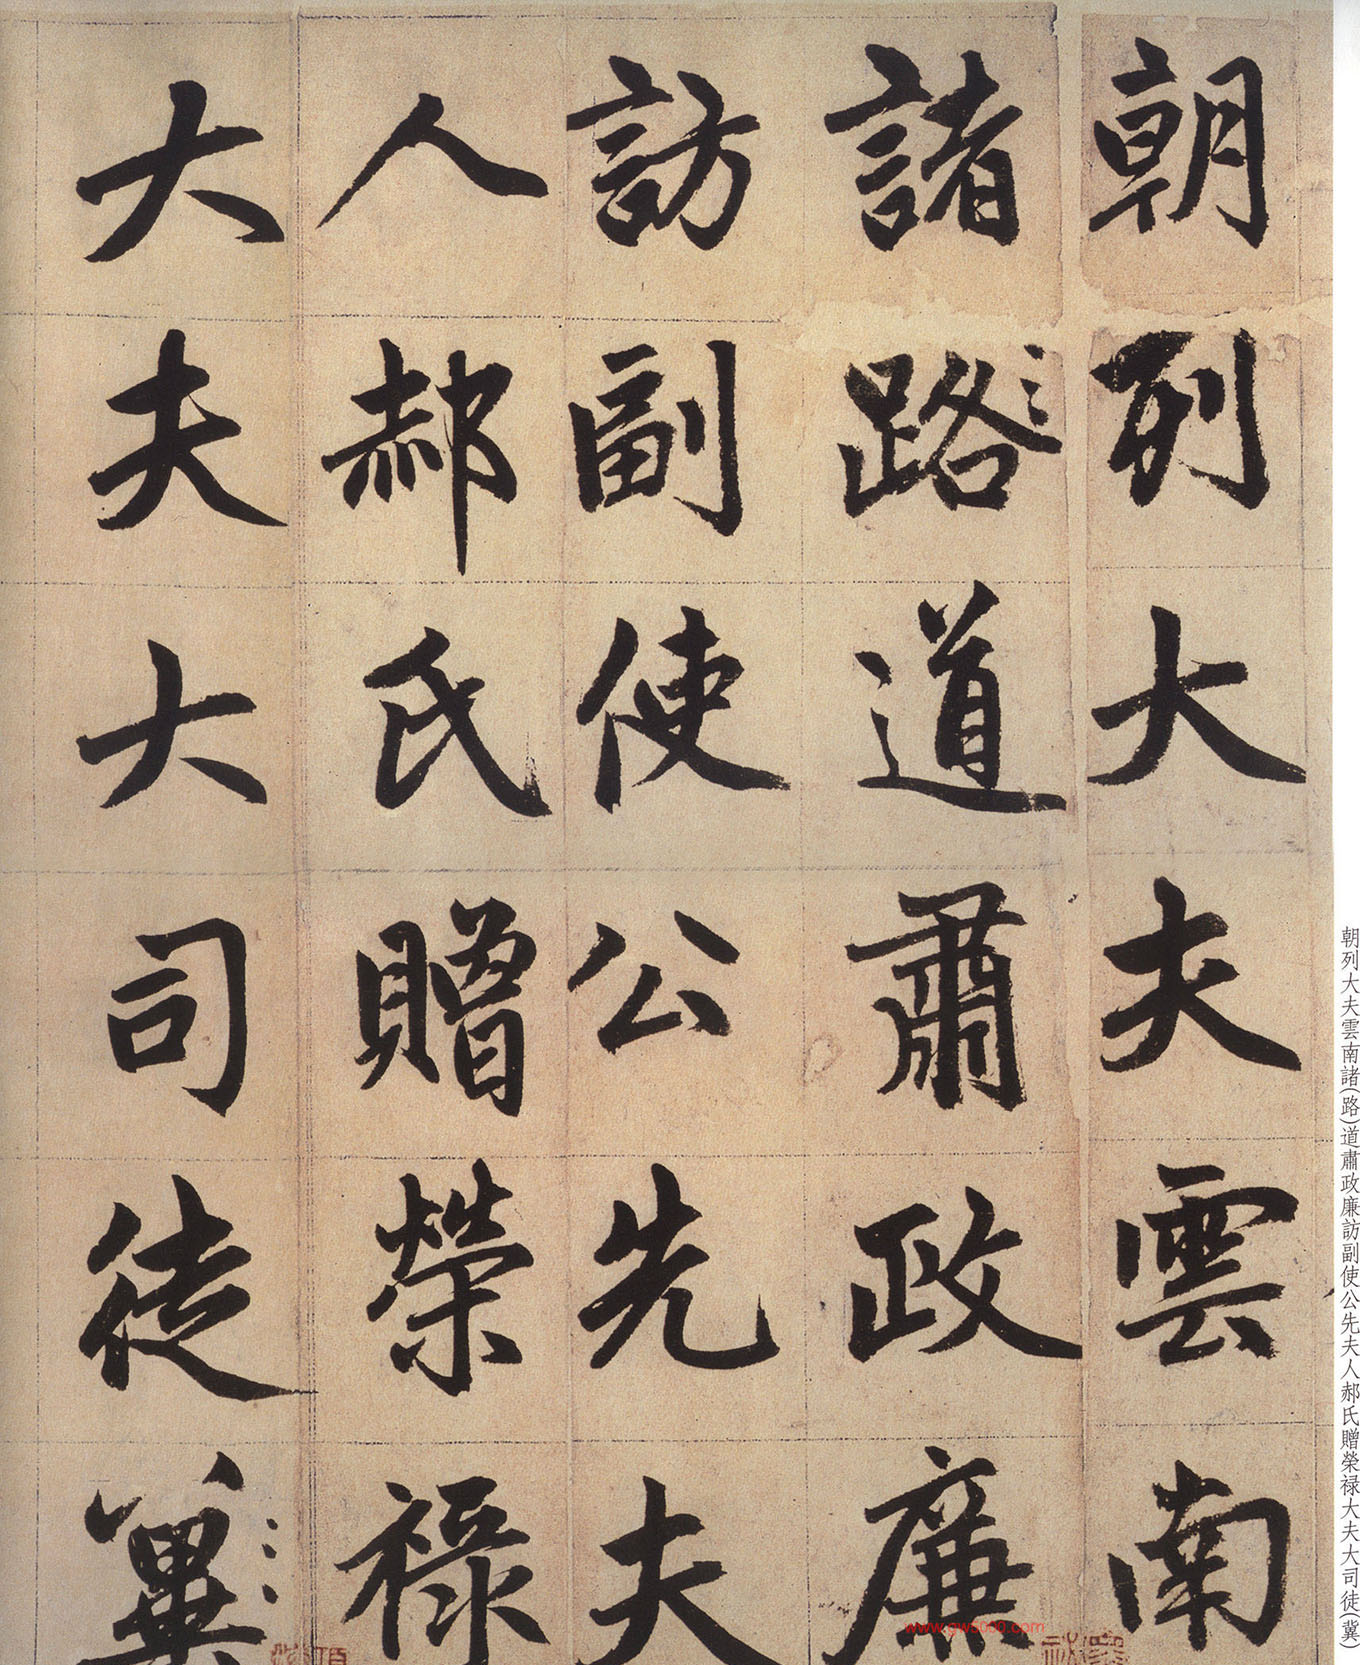 朝列大夫雲南
諸路道肅政廉
訪副使公先夫
人郝氏贈榮祿
大夫大司徒冀
朝列大夫雲南諸(路)道肅政廉訪副使公先夫人郝氏贈榮禄大夫大司徒(冀)